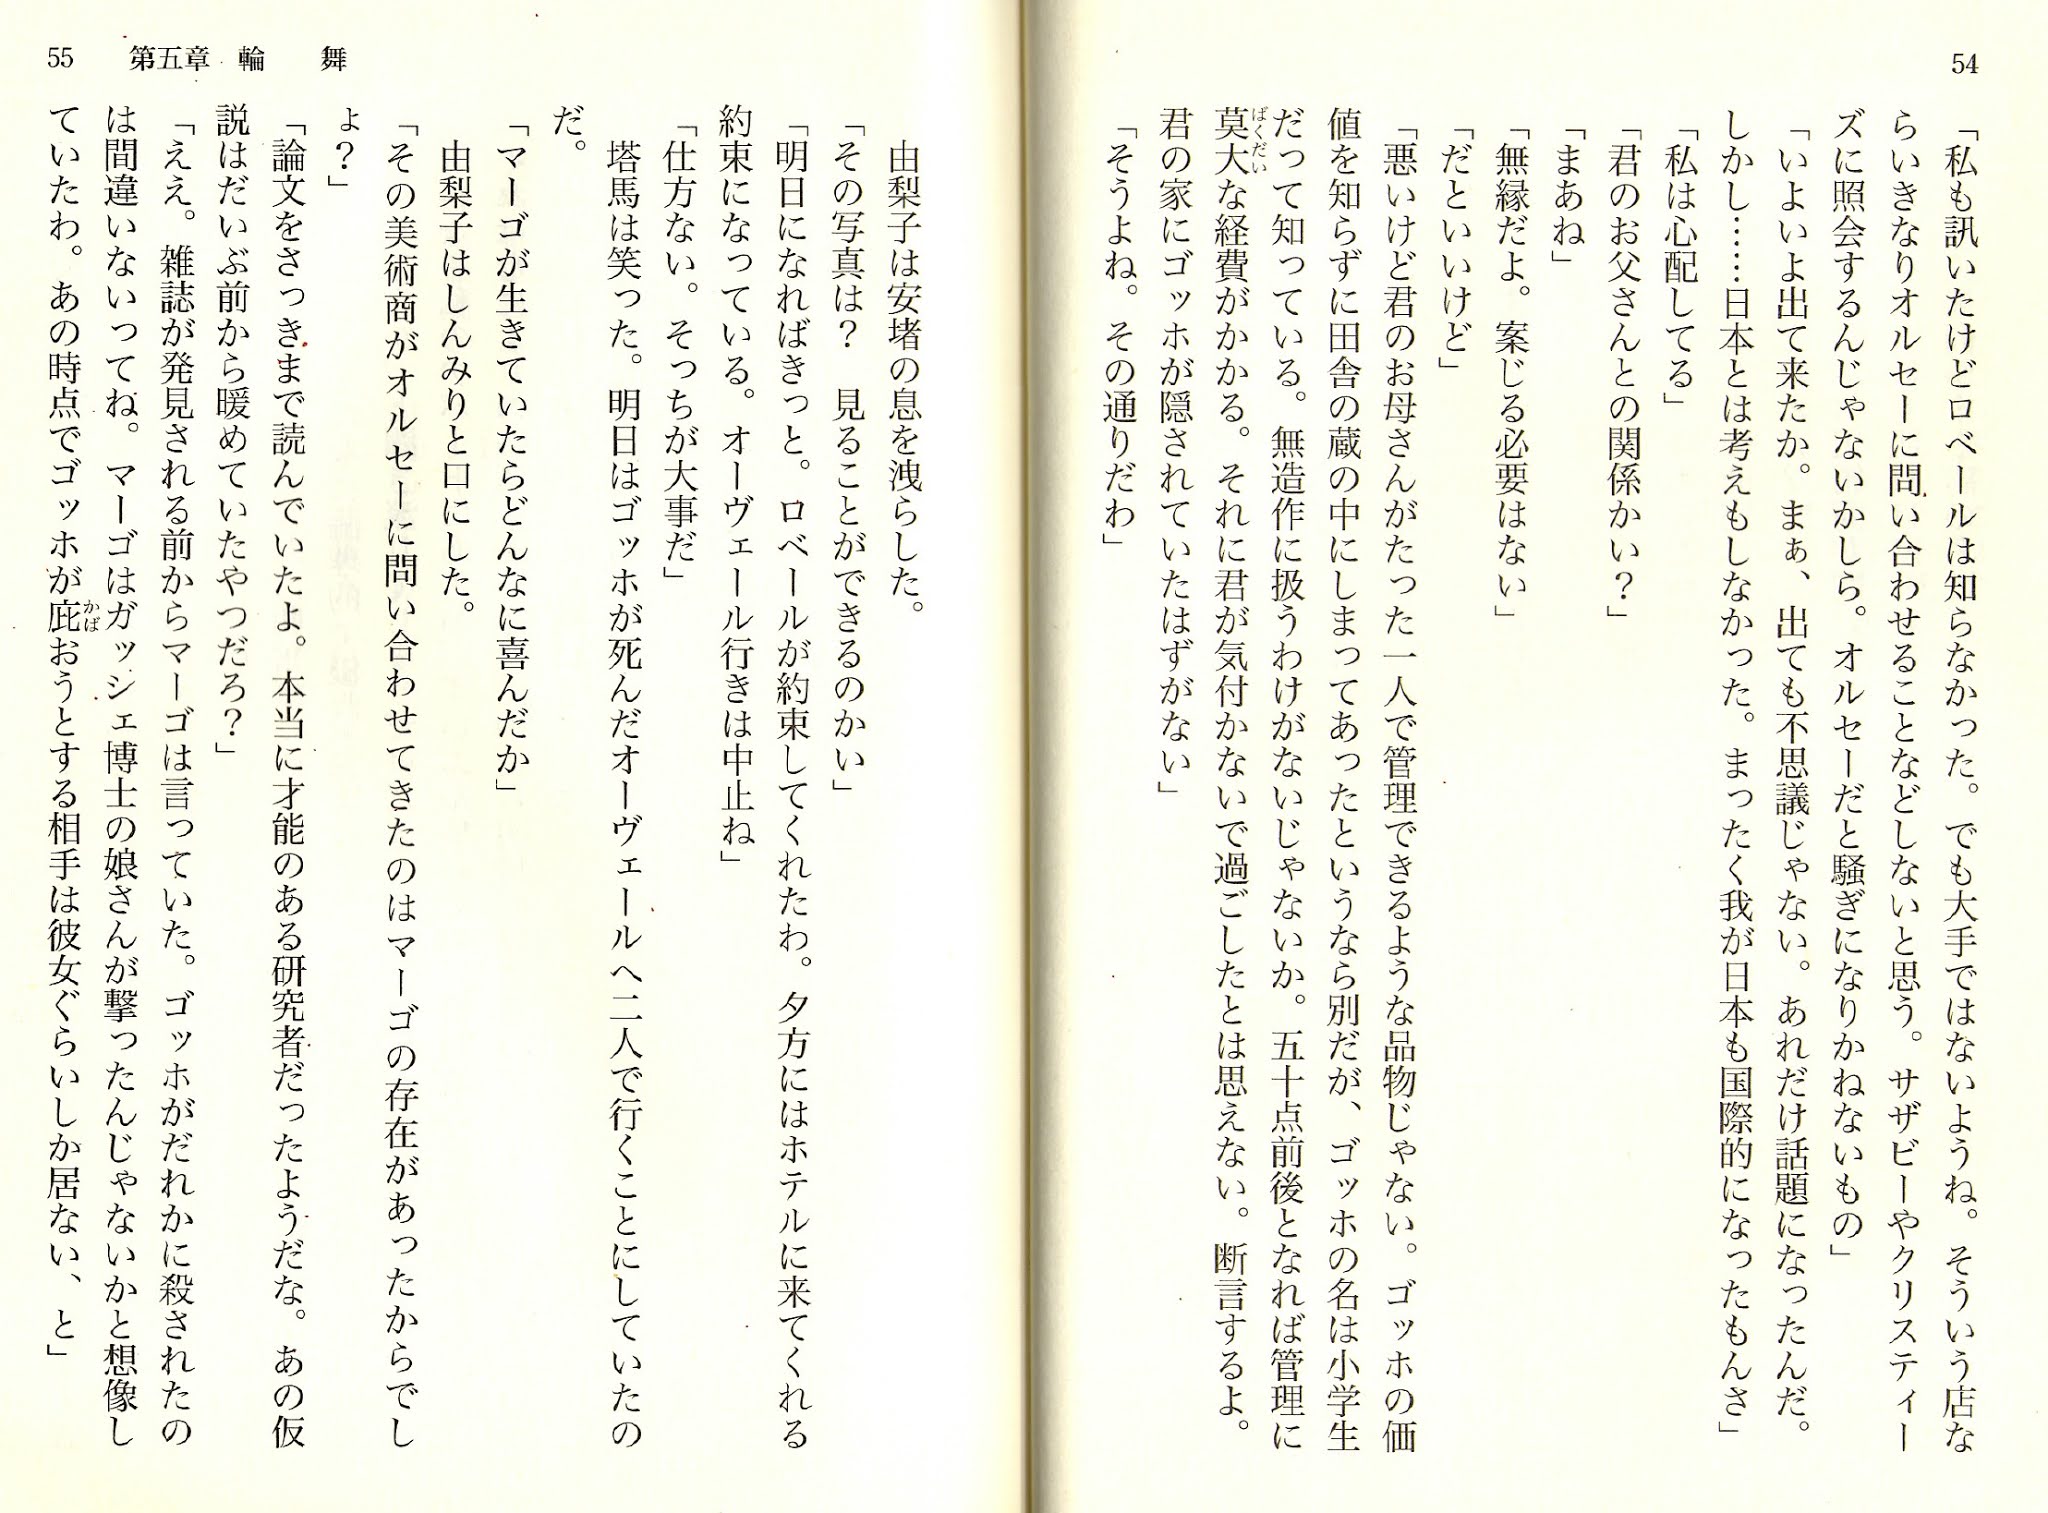 54
「私も訊いたけどロベールは知らなかった。でも大手ではないようね。そういう店な
らいきなりオルセーに問い合わせることなどしないと思う。サザビーやクリスティー
ズに照会するんじゃないかしら。オルセーだと騒ぎになりかねないもの」
「いよいよ出て来たか。まぁ、出ても不思議じゃない。あれだけ話題になったんだ。
しかし……日本とは考えもしなかった。まったく我が日本も国際的になったもんさ」
「私は心配してる」
「君のお父さんとの関係かい？」
「まあね」
「無縁だよ。案じる必要はない」
「だといいけど」
「悪いけど君のお母さんがたった一人で管理できるような品物じゃない。ゴッホの価
値を知らずに田舎の蔵の中にしまってあったというなら別だが、ゴッホの名は小学生
だって知っている。無造作に扱うわけがないじゃないか。五十点前後となれば管理に
莫大な経費がかかる。それに君が気付かないで過ごしたとは思えない。断言するよ。
ばくだい
君の家にゴッホが隠されていたはずがない」
「そうよね。その通りだわ」
55 第五章 輪 舞
由梨子は安堵の息を洩らした。
「その写真は？　見ることができるのかい」
「明日になればきっと。ロベールが約束してくれたわ。夕方にはホテルに来てくれる
約束になっている。オーヴェール行きは中止ね」
「仕方ない。そっちが大事だ」
塔馬は笑った。明日はゴッホが死んだオーヴェールへ二人で行くことにしていたの
だ。
「マーゴが生きていたらどんなに喜んだか」
由梨子はしんみりと口にした。
「その美術商がオルセーに問い合わせてきたのはマーゴの存在があったからでし
ょ？」
「論文をさっきまで読んでいたよ。本当に才能のある研究者だったようだな。あの仮
説はだいぶ前から暖めていたやつだろ？」
「ええ。雑誌が発見される前からマーゴは言っていた。ゴッホがだれかに殺されたの
は間違いないってね。マーゴはガッシェ博士の娘さんが撃ったんじゃないかと想像し
ていたわ。あの時点でゴッホが庇おうとする相手は彼女ぐらいしか居ない、と」
かば